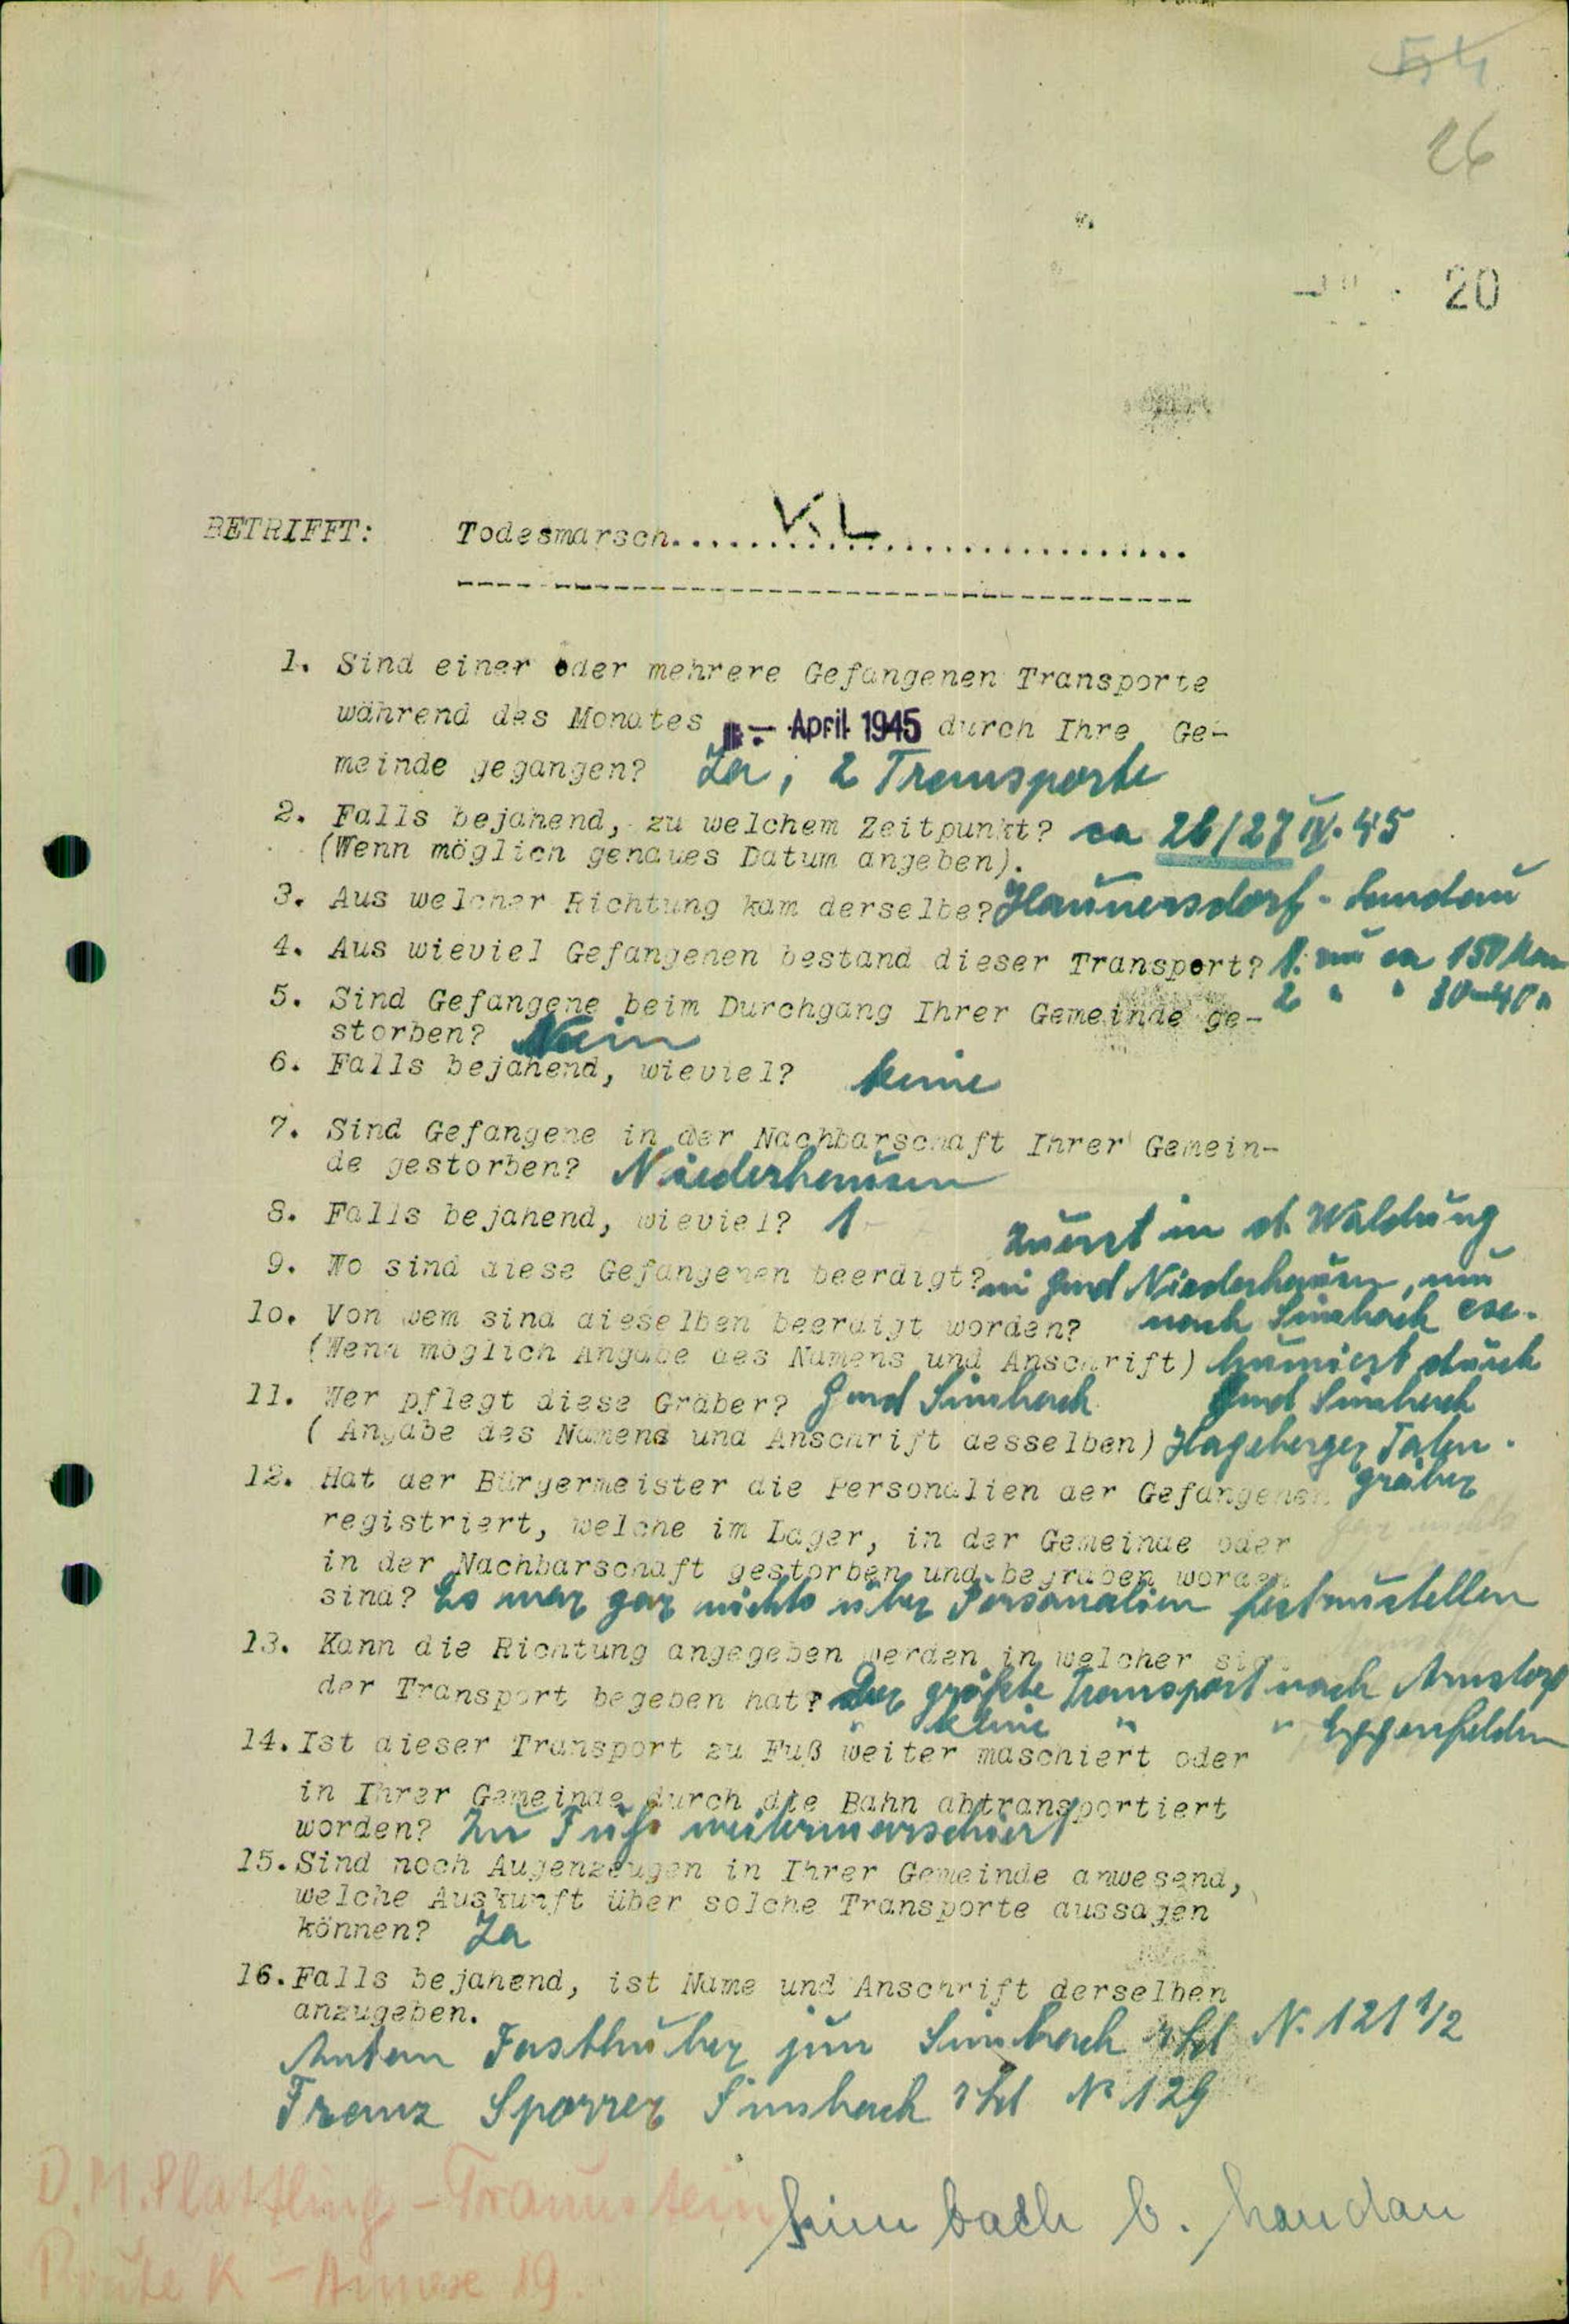 54
26
20
BETRIFFT: Todesmarsch.......KL.......................
1. Sind einer oder mehrere Gefangenen Transporte
während des Monates - April 1945 durch Ihre Ge-
meinde gegangen? Ja, 2 Transporte
2. Falls bejahend, zu welchem Zeitpunkt? ca 26/27 IV. 45
(Wenn möglich genaues Datum angeben).
3. Aus welcher Richtung kam derselbe? Haunersdorf - Landau
4. Aus wieviel Gefangenen bestand dieser Transport? 1. mit ca 150 Mann
2 " " 30-40 "
5. Sind Gefangene beim Durchgang Ihrer Gemeinde ge-
storben? Nein
6. Falls bejahend, wieviel? keine
7. Sind Gefangene in der Nachbarschaft Ihrer Gemein-
de gestorben? Niederhausen
8. Falls bejahend, wieviel? 1
zuerst in d. Waldung
9. Wo sind diese Gefangenen beerdigt? in Gmd Niederhausen, nun
10. Von wem sind dieselben beerdigt worden? nach Simbach exe-
(Wenn möglich Angabe des Namens und Anschrift) humiert durch
11. Wer pflegt diese Gräber? Gmd Simbach Gmd Simbach
( Angabe des Namens und Anschrift desselben) Hageberger Toten-
gräber
12. Hat der Bürgermeister die Personalien der Gefangenen
registriert, welche im Lager, in der Gemeinde oder
in der Nachbarschaft gestorben und begraben worden
sind? Es war gar nichts über Personalien festzustellen
13. Kann die Richtung angegeben werden in welcher sich
der Transport begeben hat? Der größte Transport nach Arnstorf
" kleine " " Eggenfelden
14. Ist dieser Transport zu Fuß weiter maschiert oder
in Ihrer Gemeinde durch die Bahn abtransportiert
worden? Zu Fuß weitermarschiert
15. Sind noch Augenzeugen in Ihrer Gemeinde anwesend,
welche Auskunft über solche Transporte aussagen
können? Ja
16. Falls bejahend, ist Name und Anschrift derselben
anzugeben.
Anton Fasthuber jun Simbach N. 121 1/2
Franz Sporrer Simbach No 129
D.M. Plattling - Traunstein
Simbach b. Landau
Route K - Annexe 19.